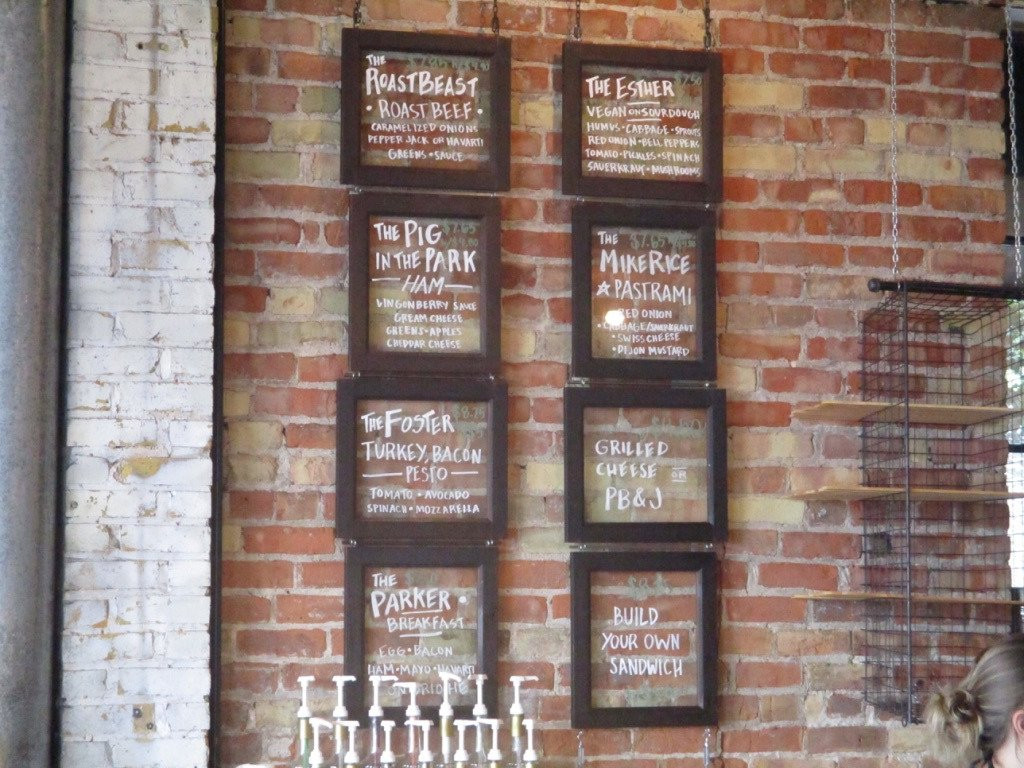 THE
ROASTBEAST
• ROAST BEEF •
CARAMELIZED ONIONS
PEPPER JACK OR HAVARTI
GREENS • SAUCE
THE PIG
IN THE PARK
HAM
LINGONBERRY SAUCE
CREAM CHEESE
GREENS • APPLES
CHEDDAR CHEESE
$8.75
THE FOSTER
TURKEY, BACON
PESTO
TOMATO • AVOCADO
SPINACH • MOZZARELLA
THE
PARKER •
BREAKFAST
EGG • BACON
HAM • MAYO • HAVARTI
$7.50
THE ESTHER
VEGAN ON SOURDOUGH
HUMUS • CABBAGE • SPROUTS
RED ONION • BELL PEPPERS
TOMATO • PICKLES • SPINACH
SAUERKRAUT • MUSHROOMS
$7.65
THE
MIKE RICE
PASTRAMI
RED ONION
• CABBAGE/SAUERKRAUT
• SWISS CHEESE
• DIJON MUSTARD
GRILLED
CHEESE OR
PB&J
BUILD
YOUR OWN
SANDWICH